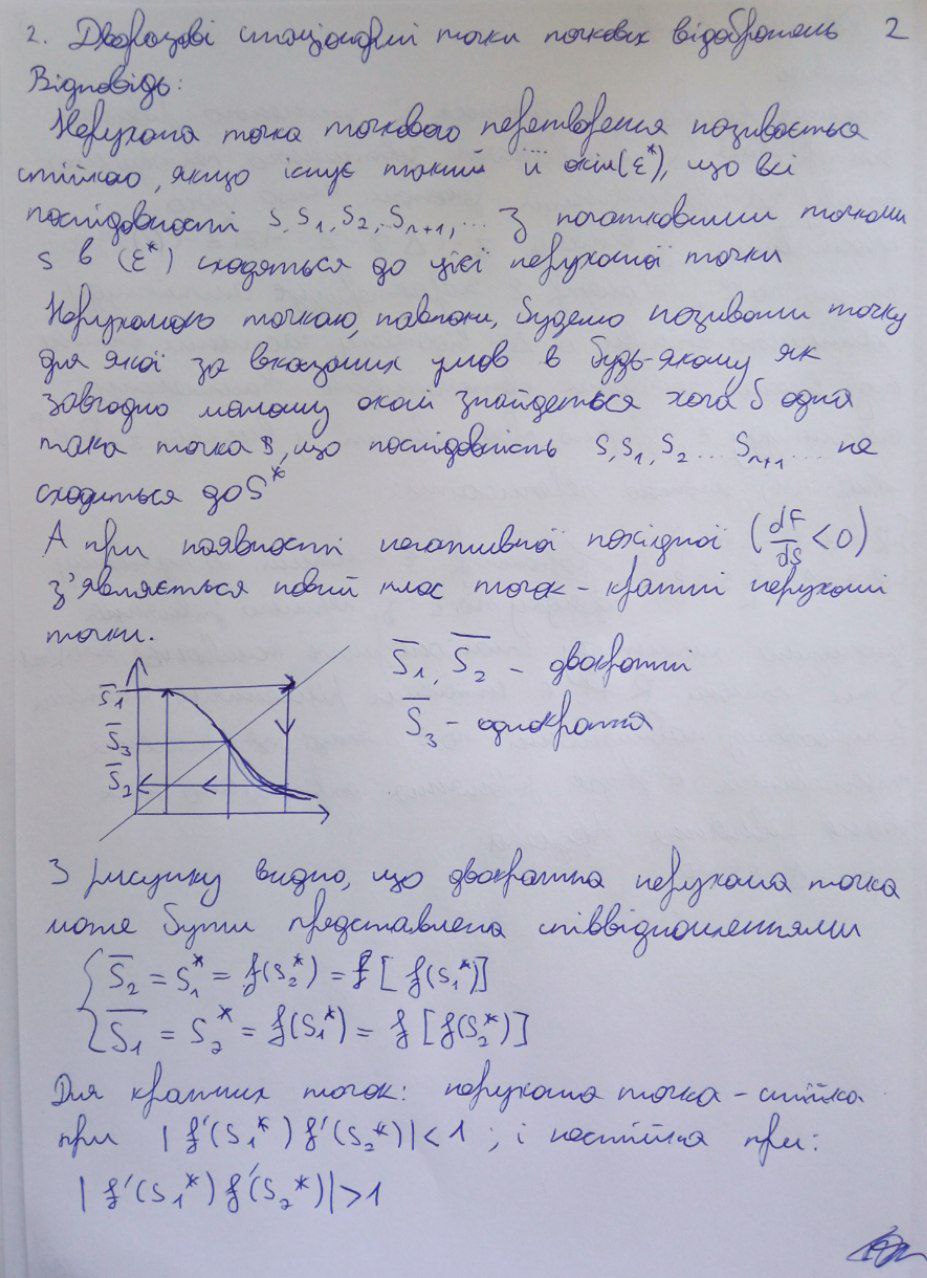 2. Дворазові стаціонарні точки точкових відображень 2
Відповідь:
Нерухома точка точкового перетворення називається
стійкою, якщо існує такий її окіл(ε*), що всі
послідовності S, S₁, S₂, Sₙ₊₁, ... З початковими точками
S в (ε*) сходяться до цієї нерухомої точки
Нерухомою точкою, навпаки, будемо називати точку
для якої за вказаних умов в будь-якому як
завгодно малому околі знайдеться хоча б одна
така точка S, що послідовність S, S₁, S₂ ... Sₙ₊₁ ... не
сходиться до S*
А при наявності негативної похідної (dF/dS < 0)
з'являється новий клас точок - кратні нерухомі
точки.
S̅₁, S̅₂ - двократні
S̅₃ - однократна
S̅₁
S̅₃
S̅₂
З рисунку видно, що двократна нерухома точка
може бути представлена співвідношеннями
{ S̅₂ = S₁* = f(S₂*) = f[f(S₁*)]
S̅₁ = S₂* = f(S₁*) = f[f(S₂*)]
Для кратних точок: нерухома точка - стійка
при |f'(S₁*) f'(S₂*)| < 1 ; і нестійка при:
|f'(S₁*) f'(S₂*)| > 1